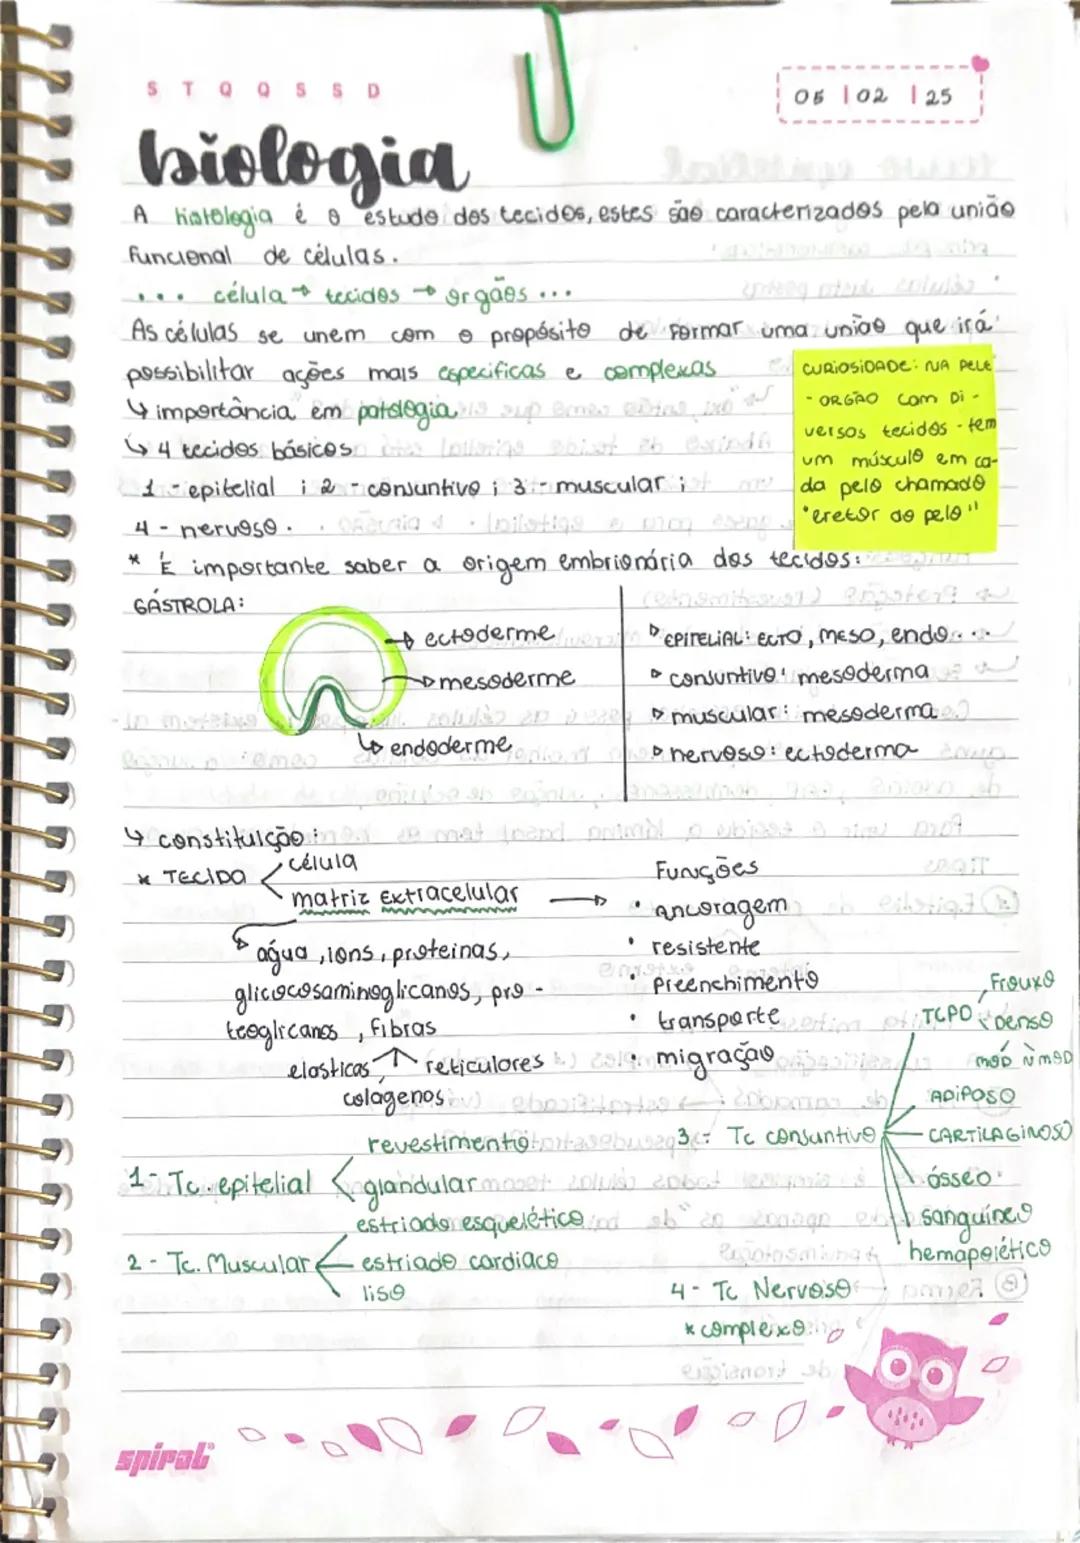 S T Q Q S S D
05 | 02 | 25
biologia
A histologia é o estudo dos tecidos, estes são caracterizados pela união
Funcional de células.
... célula → tecidos → orgãos ...
As células se unem com o propósito de formar uma união que irá
possibilitar ações mais especificas e complexas
↳ importância em patologia
↳ 4 tecidos básicos
1 - epitelial ; 2 - conjuntivo ; 3 - muscular ;
4 - nervoso .
CURIOSIDADE: NA PELE
- ORGÃO com Di-
versos tecidos - tem
um músculo em ca-
da pelo chamado
"eretor do pelo"
* É importante saber a origem embrionária dos tecidos:
GÁSTROLA:
→ ectoderme
→ mesoderme
↳ endoderme
▷ EPITELIAL: ECTO, MESO, endo....
▷ conjuntivo: mesoderma
▷ muscular: mesoderma
▷ nervoso: ectoderma
↳ constituição:
* TECIDO
célula
matriz Extracelular →
água, ions, proteinas,
glicocosaminoglicanos, pro-
teoglicanos, Fibras
elasticas reticulores
colágenos
Funções
• ancoragem
• resistente
• Preenchimento
• transporte
• migração
1 - Tc. epitelial
revestimento
glandular
2 - Tc. Muscular
estriado esquelético
estriado cardiaco
liso
3 - Tc conjuntivo
TCPD
Frouxo
Denso
mod ñ mod
ADIPOSO
CARTILAGINOSO
ósseo
sanguíneo
hemapoiético
4 - Tc Nervoso
* complexo
spiral